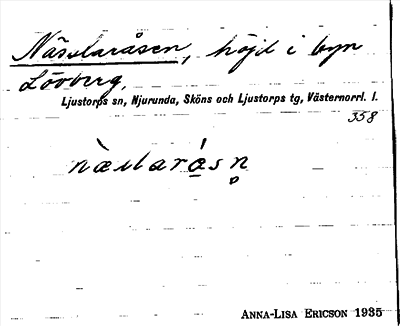 Nässlaråsen, höjd i byn
Lövberg,
Ljustorps sn, Njurunda, Sköns och Ljustorps tg, Västernorrl. l.
358
ANNA-LISA ERICSON 1935